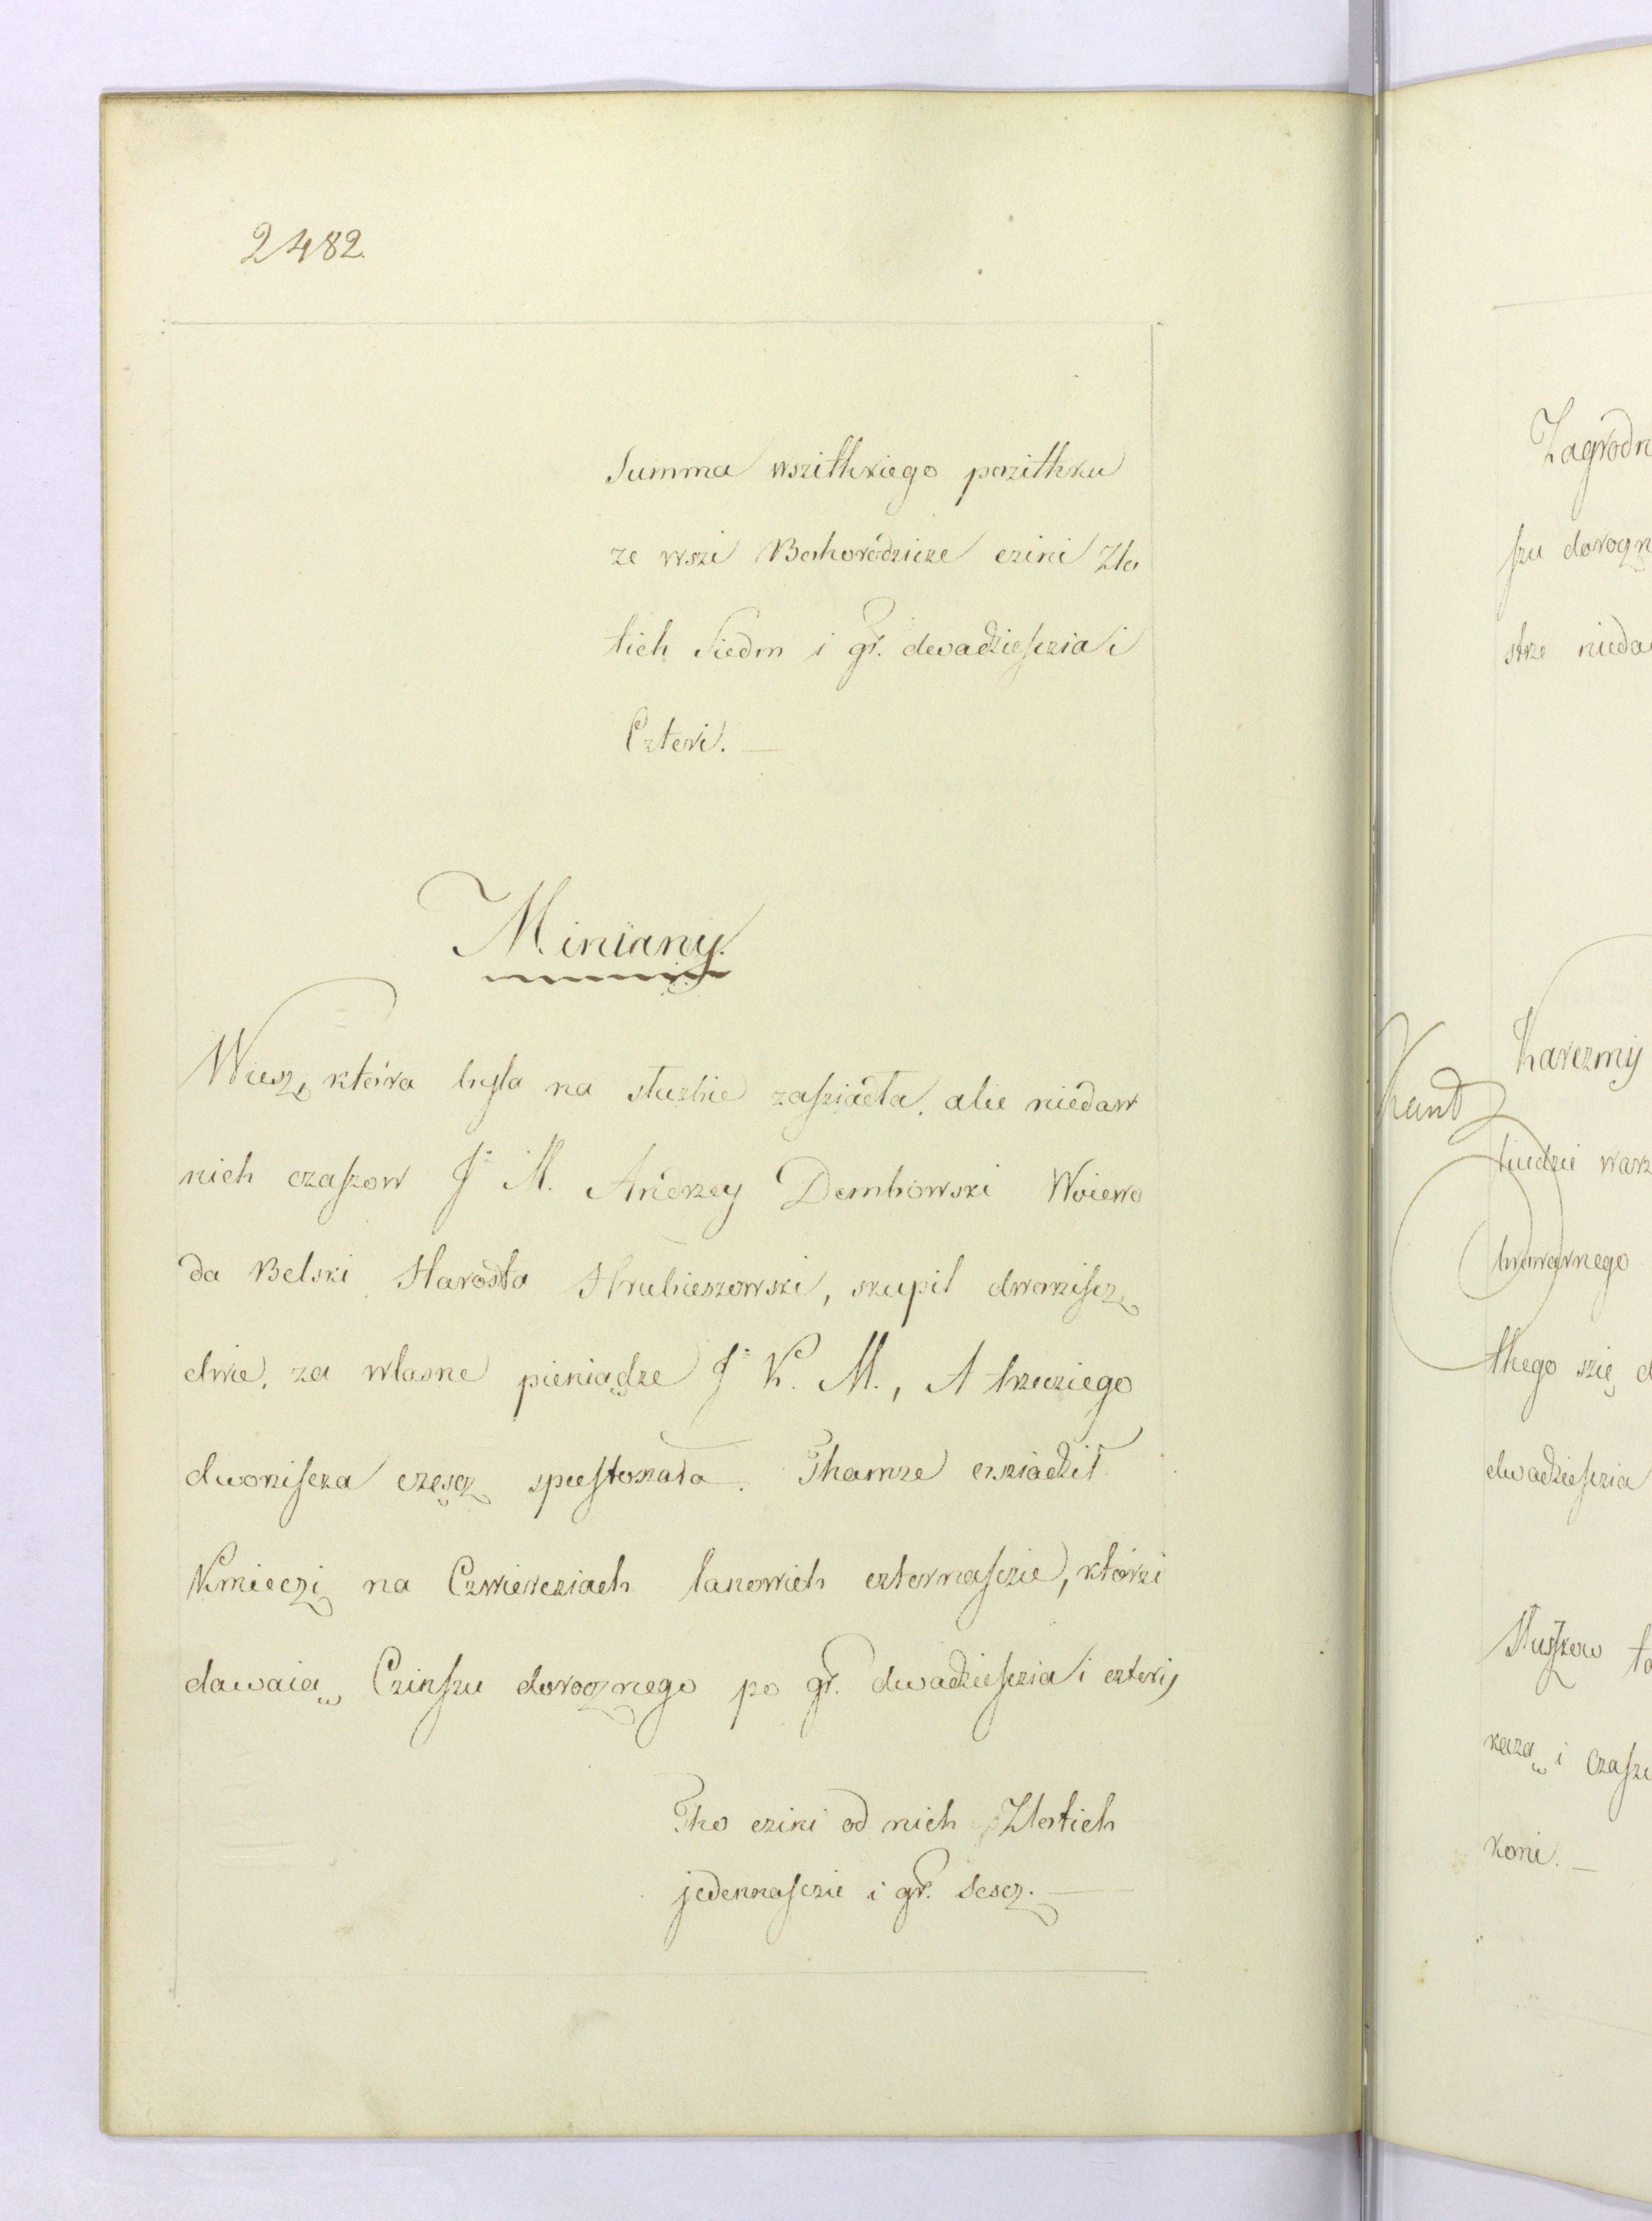 2482.
Summa wszithkiego pozithku
ze wszi Bohorodzicze czini Zło
tich Siedm i gr. dwadzieſczia i
Czteri. —
Miniany.
Wiesz, która byla na służbie zaſziadła, alie niedaw
nich czaſzow J: M. Andrzey Dembowski Woiewo
da Belski Starosta Hrubieszowski, skupil dworziſcz
dwie, za własne pieniądze J: K. M., A trzeciego
dworiſcza częscz spustoszała. Thamze
Kmieczi na Czwierciach lanowich czternaſczie, którzi
dawaią Czinſzu dorocznego po gr. dwadzieſczia i czterij
Tho czini od nich Zlotich
jedennaſczie i gr. sescz. —
Zagrodn
ſzu doroczn
strze nieda
Karczmy
ludzie warz
browarnego
thego szię d
dwadzieſczia
Służkow
każą i Czaſzu
koni. —